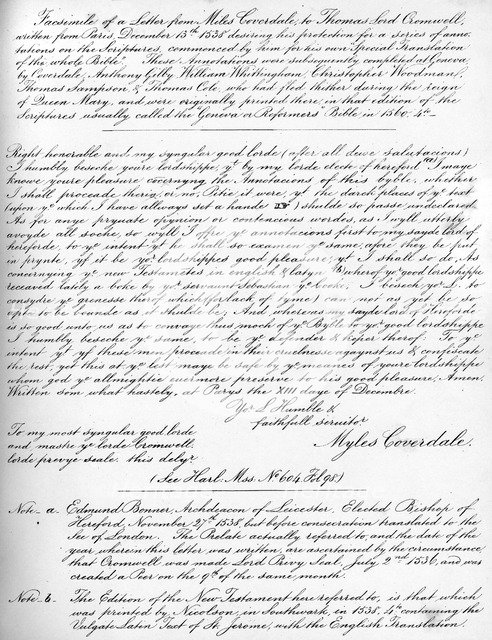 Facsimile of a Letter from Miles Coverdale, to Thomas Lord Cromwell,
written from Paris, December 13th 1538 desiring his protection for a series of anno-
tations on the Scriptures, commenced by him for his own Special Translation
of the whole Bible. These Annotations were subsequently completed at Geneva
by Coverdale, Anthony Gilby, William Whittingham, Christopher Woodman,
Thomas Sampson & Thomas Cole, who had fled thither during the reign
of Queen Mary, and were originally printed there, in that edition of the
Scriptures, usually called the Geneva or Reformers' Bible in 1560. 4to
Right honorable and my syngular good lorde (after all dewe Salutacions)
I humbly beseche youre lordshippe, yt by my lorde electe of hereford (a) I maye
knowe youre pleasure, concernyng the Annotacions of this byble, whether
I shall proceade therin, or no. Pitie it were, yt the darck places of ye text
(upon ye which I have allwaye set a hande) shulde so passe undeclared.
As for anye pryuate opynion or contencious wordes, as I wyll utterly
avoyde all soche, so wyll I offre ye annotacions first to my sayde lord of
hereforde, to ye intent yt he shall so examen ye same, afore they be put
in prynte, yf it be yor lordshippes good pleasure, yt I shall so do. As
concernyng ye new Testamentes in english & latyn (b) wherof yor good lordshippe
receaved lately a boke by yor servaunt Sebastian ye Cooke, I besech yor L. to
consydre ye grenesse therof which (for lack of tyme) can not as yet be so
apte to be bounde as it shulde be; And whereas my sayde lord of Hereforde
is so good unto us as to convaye thus moch of ye Byble to yor good lordshippe
I humbly beseche ye same, to be ye defender & keper therof; To ye
intent yt yf these men proceade in their cruelnesse agaynst us & confiscate
the rest, yet this at ye lest maye be safe by ye meanes of youre lordshippe
whom god ye allmightie evermore preserve to his good pleasure, Amen.
Written som what hastely, at Parys the XIII daye of Decembre.
Yor L Humble &
faithfull servitor
To my most syngular good lorde
and mastre ye lorde Cromwell
lorde prevye seale. this delyr
Myles Coverdale.
(See Harl. Mss. No 604, Fol 98)
Note a. Edmund Bonner, Archdeacon of Leicester, Elected Bishop of
Hereford, November 27th 1538, but before consecration translated to the
See of London. The Prelate actually referred to, and the date of the
year wherein this letter was written, are ascertained by the circumstance
that Cromwell was made Lord Privy Seal, July 2nd 1536, and was
created a Peer on the 9th of the same month.
Note b. The Edition of the New Testament here referred to, is that which
was printed by Nicolson, in Southwark, in 1538. 4to containing the
Vulgate Latin Text of St. Jerome, with the English Translation.